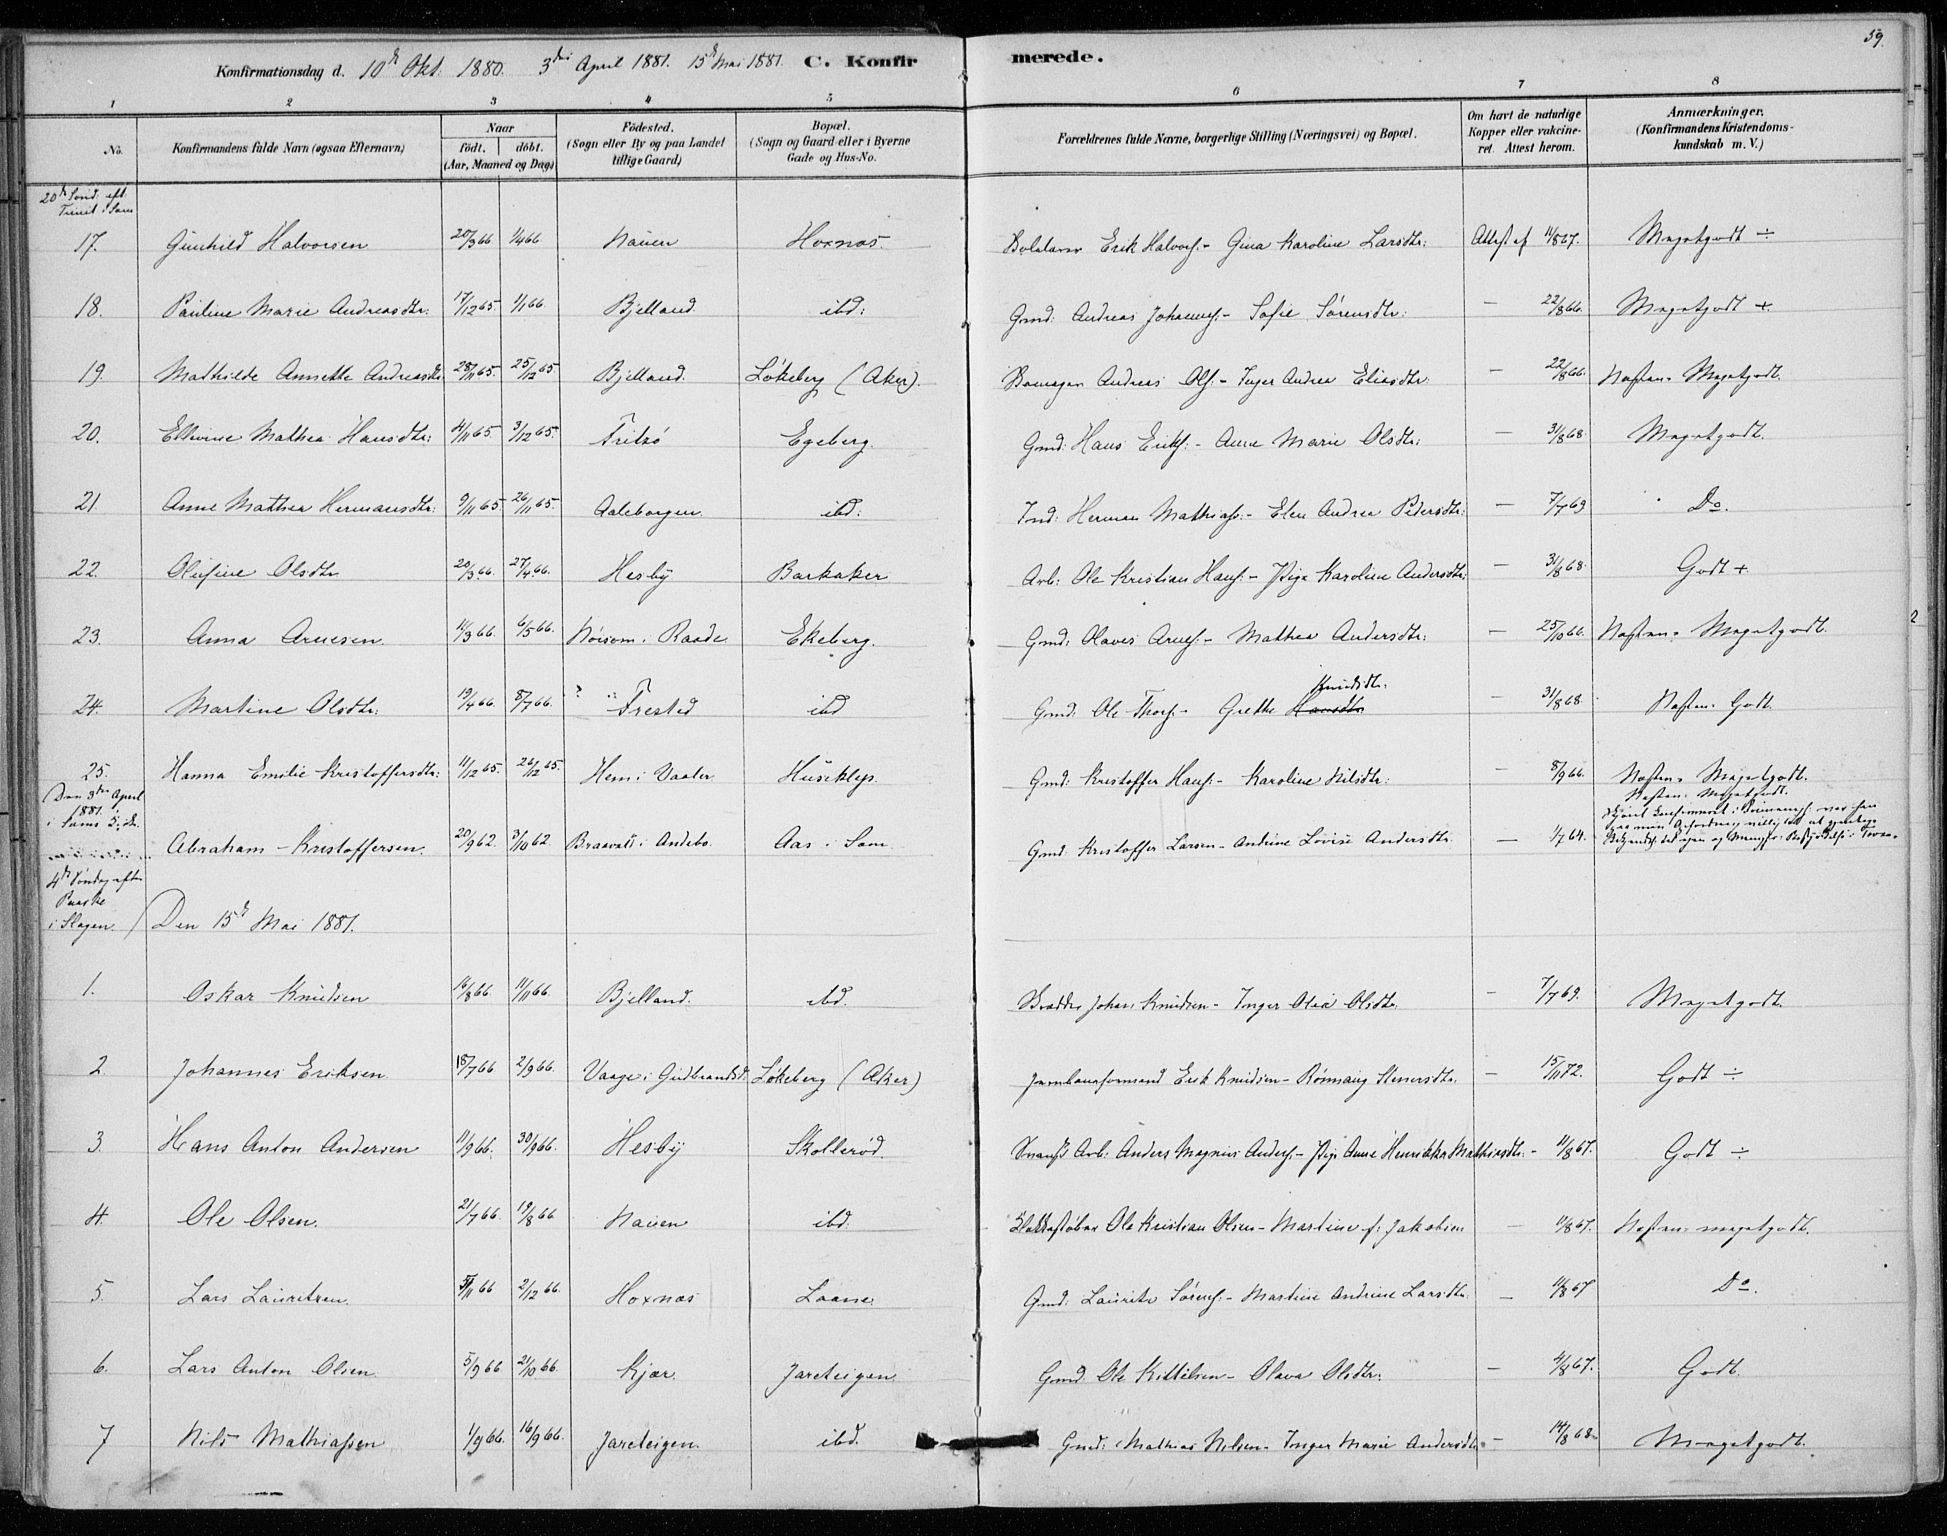 59.
Konfirmationsdag d. 10de Okt. 1880. 3die April 1881. 15de Mai 1881. C. Konfirmerede.
1 2 3 4 5 6 7 8
No. Konfirmandens fulde Navn (ogsaa Efternavn) Naar født. døbt. (Aar, Maaned og Dag) Födested. (Sogn eller By og paa Landet tillige Gaard) Bopæl. (Sogn og Gaard eller i Byerne Gade og Hus-No. Forældrenes fulde Navne, borgerlige Stilling (Næringsvei) og Bopæl. Om havt de naturlige Kopper eller vakcineret. Attest herom. Anmærkninger. (Konfirmandens Kristendomskundskab m. V.)
20de Sønd. eft. Trinit. i Sem
17. Gunhild Halvorsen 20/3 66 1/4 66 Nauen Hoxnæs. Erik Halvors:- Gina Karoline Larsdtr: Attest af 11/8 67. Megetgodt ÷
18. Pauline Marie Andreasdtr: 17/12 65. 1/1 66. Bjelland ibd: Gmd: Andreas Johannes:- Sofie Sørensdtr: — 22/8 66. Megetgodt +
19. Mathilde Annette Andreasdtr 28/11 65. 25/12 65 Bjelland. Løkeberg (Aker). Andreas Ols:- Inger Andrea Eliasdtr: — 22/8 66. Næsten Megetgodt.
20. Ellevine Mathea Hansdtr: 4/11 65 3/12 65. Fritzø Egeberg. Gmd: Hans Eriks:- Anne Marie Olsdtr: — 31/8 68 Megetgodt.
21. Anne Mathea Hermansdtr: 9/11 65. 26/11 65. Aaleborgen. ibd: Ind: Herman Mathias:- Elen Andrea Pedersdtr: — 7/7 69 Do.
22. Olufine Olsdtr 20/3 66. 27/4 66. Hesby Barkaker Arb: Ole Kristian Hans:- Pige Karoline Andersdtr: — 31/8 68. Godt +
23. Anna Arnesen. 11/3 66. 6/5 66. Nøisom i Raade Ekeberg. Gmd: Olaves Arnes:- Mathea Andersdtr: — 25/10 66. Næsten Megetgodt.
24. Martine Olsdtr: 19/4 66. 8/7 66. ? Frested ibd Gmd: Ole Thors:- Grethe Hansdtr Knudsdtr: — 31/8 68. Næsten Godt.
25. Hanna Emilie Kristoffersdtr: 11/12 65. 26/12 65. Hem i Vaaler Huseklep. Gmd: Kristoffer Hans:- Karoline Nilsdtr: — 8/9 66. Næsten Megetgodt.
Den 3die April 1881. i Sems K:
Abraham Kristoffersen. 20/9 62. 3/10 62. Braavald i Andebo. Aas i Sem. Gmd: Kristoffer Larsen- Andrine Lovise Andersdtr. — 1/7 64. Næsten Megetgodt.
4de Søndag efter Paaske i Slagen. Den 15de Mai 1881.
1. Oskar Knudsen 16/8 66. 11/11 66. Bjelland. ibd. Johan Knudsen- Inger Olea Olsdtr. — 7/7 69. Megetgodt.
2. Johannes Eriksen. 18/7 66 2/9 66. Vaage i Gudbrandsd: Løkeberg (Aker) Jernbaneformand Erik Knudsen- Rønnaug Stenersdtr. — 15/11 72. Godt ÷
3. Hans Anton Andersen 11/9 66. 30/9 66. Hesby Skollerød. Arb: Anders Magnus Anders:- Pige Anne Henrikke Mathiasdtr:- 11/8 67. Godt ÷
4. Ole Olsen. 21/7 66. 19/8 66 Nauen ibd. Ole Kristian Olsen- Martine f: Jakobsen — 11/8 67. Næsten megetgodt.
5. Lars Lauritzen. 5/11 66 2/12 66. Hoxnæs Laane. Gmd: Lauritz Sørens:- Martine Andrine Larsdtr. — 11/8 67 Do.
6. Lars Anton Olsen. 5/9 66 21/10 66. Kjær. Jareteigen. Gmd. Ole Kittilsen- Olava Olsdtr: — 4/8 67. Godt.
7 Nils Mathiassen 1/9 66. 16/9 66. Jareteigen. ibd. Gmd: Mathias Nilsen- Inger Marie Andersdtr. — 14/8 68. Megetgodt.